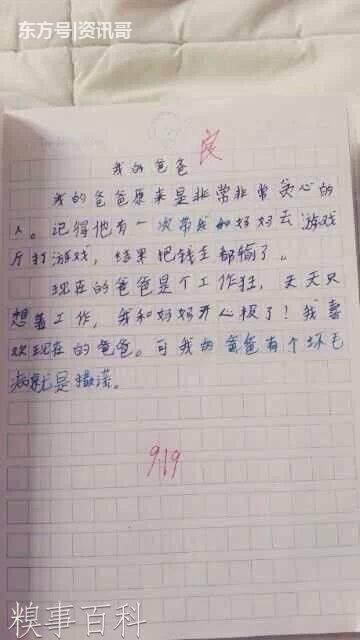 东方号|资讯哥
良
我的爸爸
我的爸爸原来是非常非常贪心的
人。记得他有一次带我和妈妈去游戏
厅打游戏，结果把钱全都输了。
现在的爸爸是个工作狂，天天只
想着工作，我和妈妈开心极了！我喜
欢现在的爸爸。可我的爸爸有个坏毛
病就是撒谎。
9.19
糗事百科